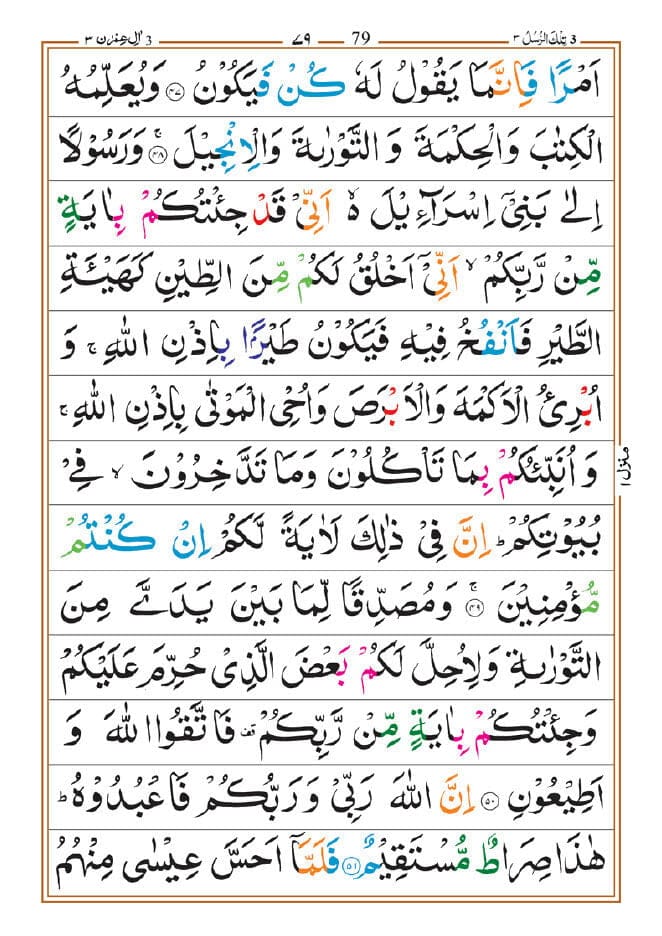 3 تِلْكَ الرُّسُلُ ٣ 79 ٧٩ 3 اٰلِ عِمْرٰن ٣
اَمْرًا فَاِنَّمَا يَقُوْلُ لَهٗ كُنْ فَيَكُوْنُ ۝٤٧ وَيُعَلِّمُهُ
الْكِتٰبَ وَالْحِكْمَةَ وَ التَّوْرٰىةَ وَالْاِنْجِيْلَ ۝٤٨ۚ وَرَسُوْلًا
اِلٰى بَنِيْٓ اِسْرَآءِيْلَ ۥۙ اَنِّيْ قَدْ جِئْتُكُمْ بِاٰيَةٍ
مِّنْ رَّبِّكُمْ ۙ اَنِّيْٓ اَخْلُقُ لَكُمْ مِّنَ الطِّيْنِ كَهَيْـَٔةِ
الطَّيْرِ فَاَنْفُخُ فِيْهِ فَيَكُوْنُ طَيْرًۢا بِاِذْنِ اللّٰهِ ۚ وَ
اُبْرِئُ الْاَكْمَهَ وَالْاَبْرَصَ وَاُحْيِ الْمَوْتٰى بِاِذْنِ اللّٰهِ ۚ
وَ اُنَبِّئُكُمْ بِمَا تَاْكُلُوْنَ وَمَا تَدَّخِرُوْنَ ۙ فِيْ
بُيُوْتِكُمْ ؕ اِنَّ فِيْ ذٰلِكَ لَاٰيَةً لَّكُمْ اِنْ كُنْتُمْ
مُّؤْمِنِيْنَ ۝٤٩ۚ وَمُصَدِّقًا لِّمَا بَيْنَ يَدَيَّ مِنَ
التَّوْرٰىةِ وَلِاُحِلَّ لَكُمْ بَعْضَ الَّذِيْ حُرِّمَ عَلَيْكُمْ
وَجِئْتُكُمْ بِاٰيَةٍ مِّنْ رَّبِّكُمْ ۫ فَاتَّقُوا اللّٰهَ وَ
اَطِيْعُوْنِ ۝٥٠ اِنَّ اللّٰهَ رَبِّيْ وَرَبُّكُمْ فَاعْبُدُوْهُ ؕ
هٰذَا صِرَاطٌ مُّسْتَقِيْمٌ ۝٥١ فَلَمَّآ اَحَسَّ عِيْسٰى مِنْهُمُ
منزل ١